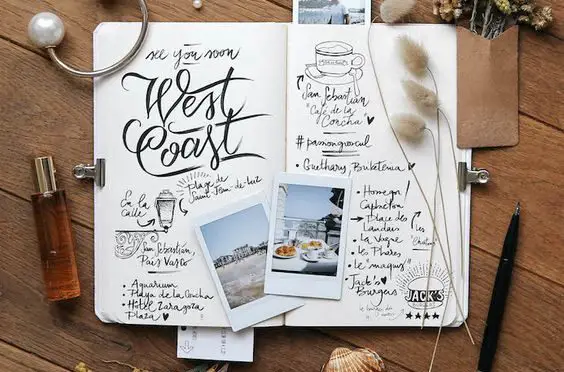 see you soon
West
Coast
Plage de
Saint-Jean-de-Luz
En la
calle
San Sebastián,
País Vasco
• Aquarium
• Playa de la Concha
• Hôtel Zaragoza
Plaza
San Sebastián
"Café de la
Concha"
#pasmongroscul
Guethary, Briketenia
• Homegar /
Capbreton
Place des
Landais
• La Vigne
• Les Phares
• Le "maquis"
Jack's
Burgers
JACK'S